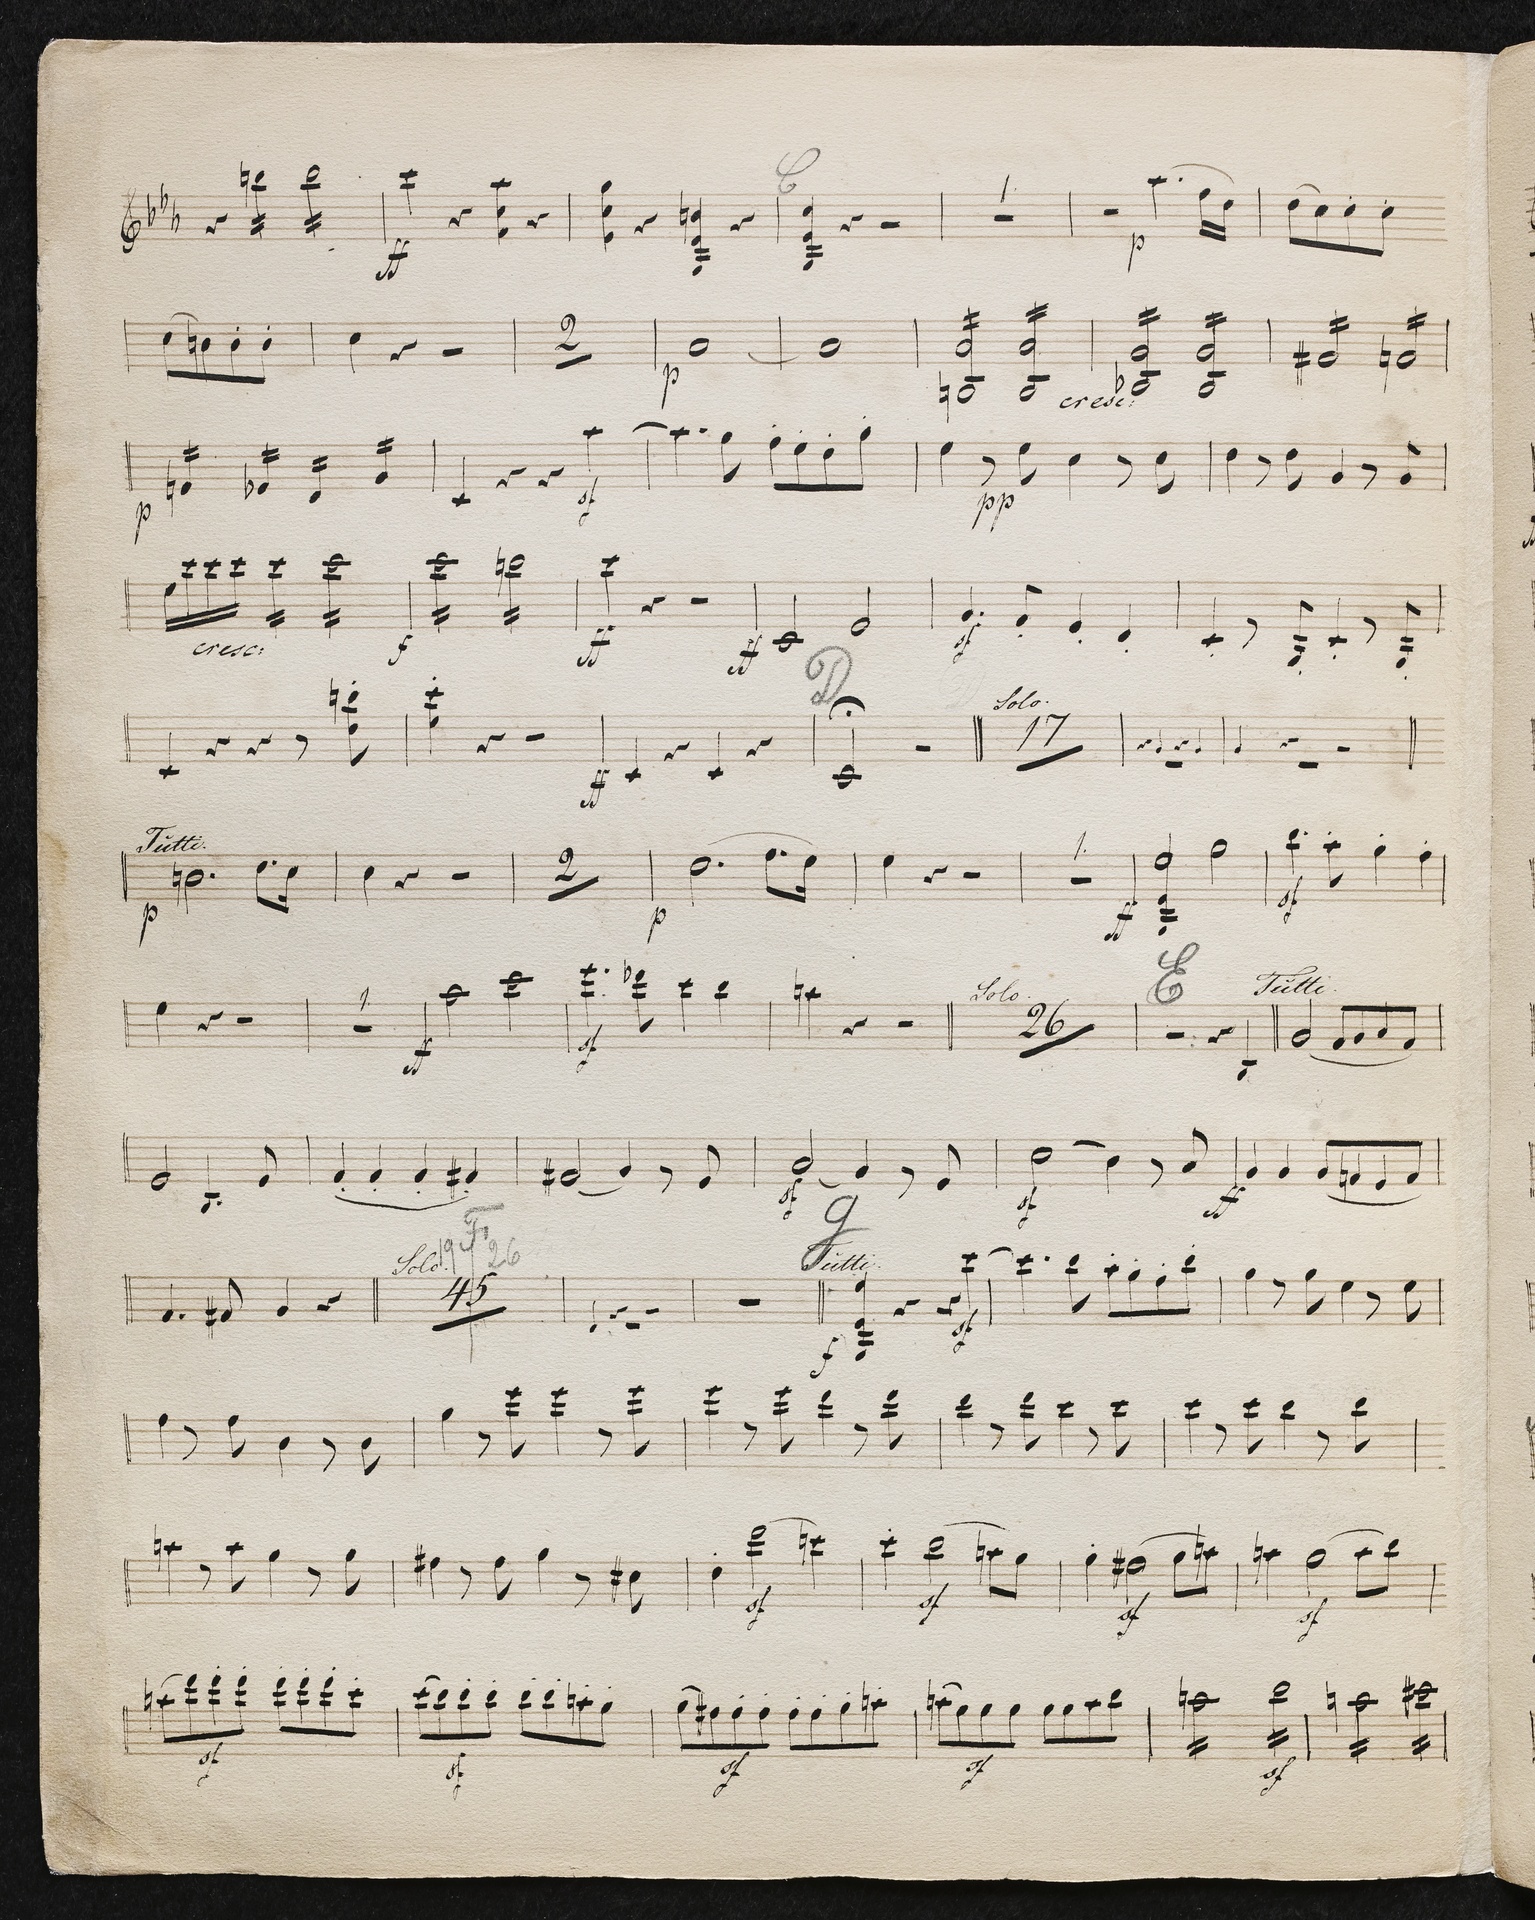 C
1.
ff p
2
p cresc:
p sf pp
cresc: f ff ff sf
D
Solo.
17
ff
Tutti.
2 1.
p p ff sf
E
1. Solo. Tutti.
26
ff sf
sf sf ff
F
19 26 g
Solo. Tutti.
45
f sf
sf sf sf sf
sf sf sf sf sf